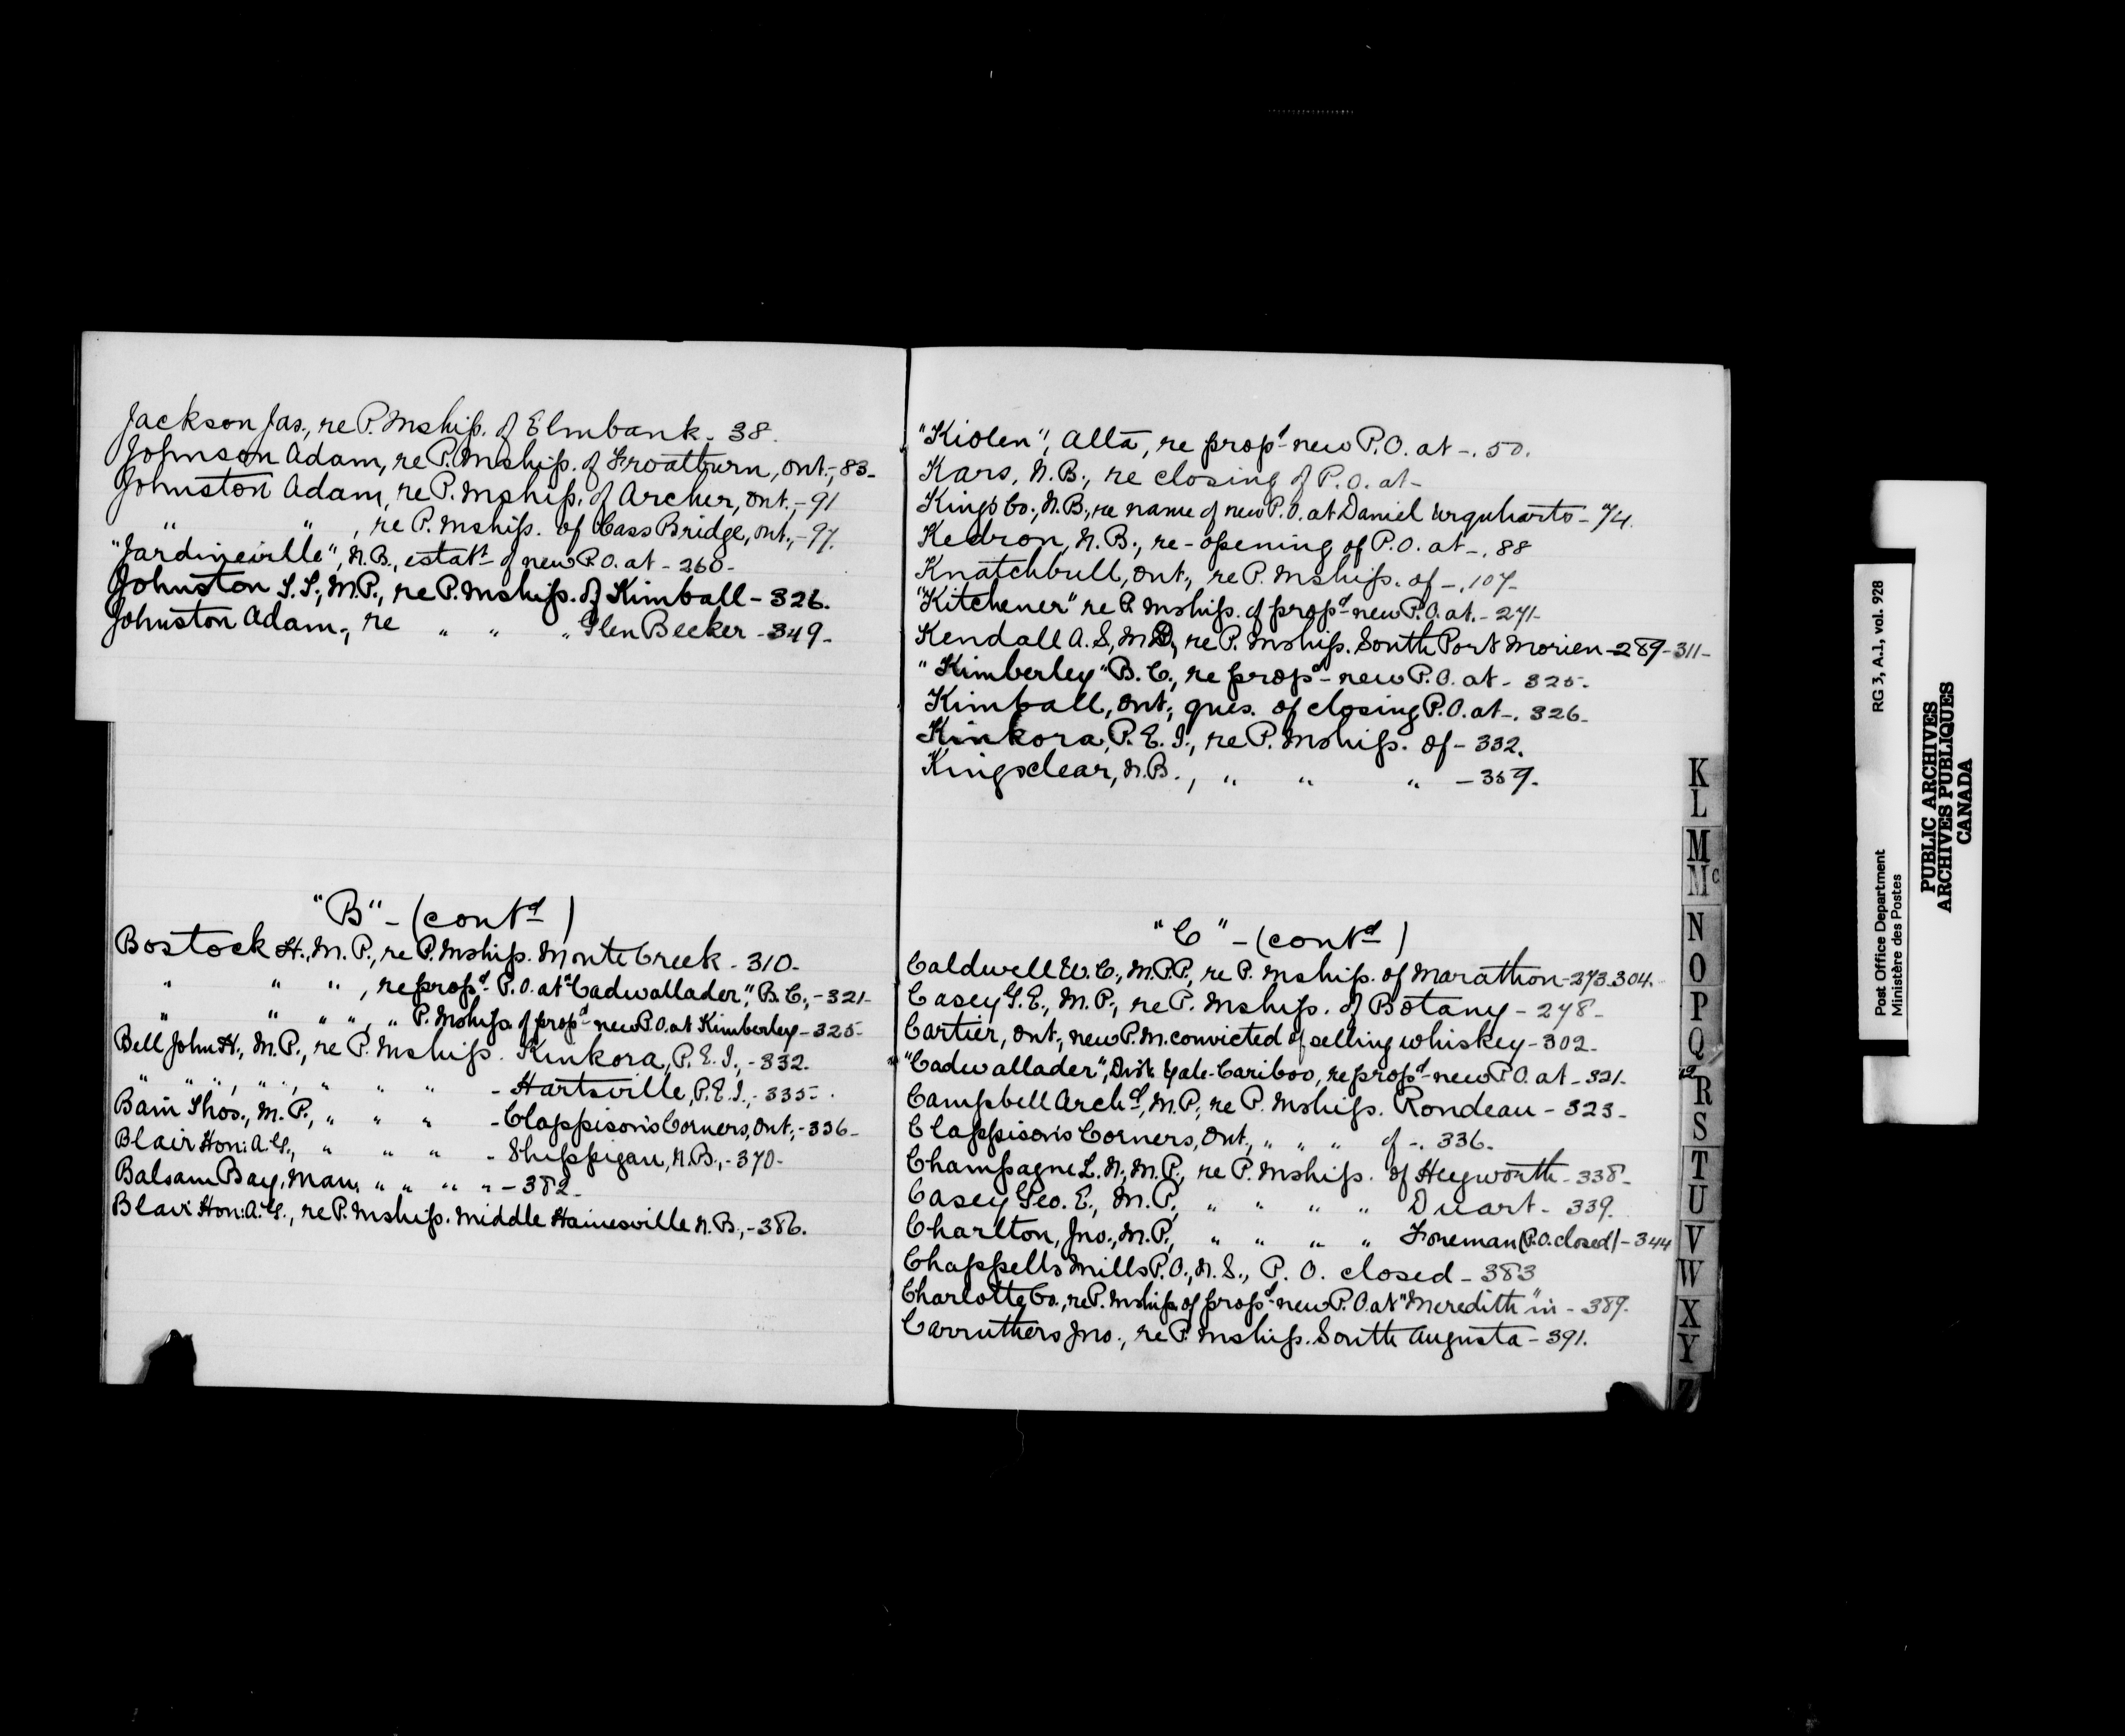 Jackson Jas., re P. Mship. of Elmbank. 38.
Johnson Adam, re P. Mship. of Froatburn, Ont., - 83 -
Johnston Adam, re P. Mship. of Archer, Ont., - 91
" " , re P. Mship. of Cass Bridge, Ont., - 97.
"Jardineville", N.B., estabt of new P.O. at - 260 -
Johnston T.T., M.P., re P. Mship. of Kimball - 326.
Johnston Adam, re " " " Glen Becker - 349 -
"B" - (contd)
Bostock H., M.P., re P. Mship. Monte Creek - 310 -
" " " , re propd P.O. at "Cadwallader", B.C., - 321 -
" " " " , " P. Mship. of propd new P.O. at Kimberley - 325 -
Bell John H., M.P., re P. Mship. Kinkora, P.E.I., - 332.
" " " , " " , " " " - Hartsville, P.E.I., - 335 - .
Bain Thos., M.P., " " " - Clappison's Corners, Ont., - 336 -
Blair Hon: A.G., " " " " - Shippigan, N.B., - 370 -
Balsam Bay, Man, " " " " - 382 -
Blair Hon: A.G., re P. Mship. Middle Hainesville N.B., - 386.
"Kiolen", Alta, re propd new P.O. at - . 50.
Kars, N.B., re closing of P.O. at -
Kings Co., N.B., re name of new P.O. at Daniel Urquharts - 74.
Kedron, N.B., re-opening of P.O. at - . 88
Knatchbull, Ont., re P. Mship. of - . 107 -
"Kitchener" re P. Mship. of propd new P.O. at. - 271 -
Kendall A.S., M.D., re P. Mship. South Port Morien - 289 - 311 -
"Kimberley" B.C., re propd - new P.O. at - 325 -
Kimball, Ont., ques. of closing P.O. at - . 326 -
Kinkora, P.E.I., re P. Mship. of - 332.
Kingsclear, N.B., " " " - 359.
"C" - (contd)
Caldwell W.C., M.P.P., re P. Mship. of Marathon - 273.304.
Casey G.E., M.P., re P. Mship. of Botany - 278 -
Cartier, Ont., new P.M. convicted of selling whiskey - 302 -
"Cadwallader", Dist. Yale-Cariboo, re propd new P.O. at - 321 -
Campbell Archd, M.P., re P. Mship. Rondeau - 323 -
Clappison's Corners, Ont., " " " of - . 336 -
Champagne L.N., M.P., re P. Mship. of Heyworth - 338 -
Casey Geo. E., M.P., " " " " Duart - 339.
Charlton, Jno., M.P., " " " " Foreman (P.O. closed) - 344
Chappells Mills P.O., N.S., P.O. closed - 383
Charlotte Co., re P. Mship. of propd new P.O. at "Meredith" in - 389.
Carruthers Jno., re P. Mship. South Augusta - 391.
K
L
M
Mc
N
O
P
Q
R
S
T
U
V
W
X
Y
Z
Post Office Department RG 3, A.1, vol. 928
Ministère des Postes
PUBLIC ARCHIVES
ARCHIVES PUBLIQUES
CANADA